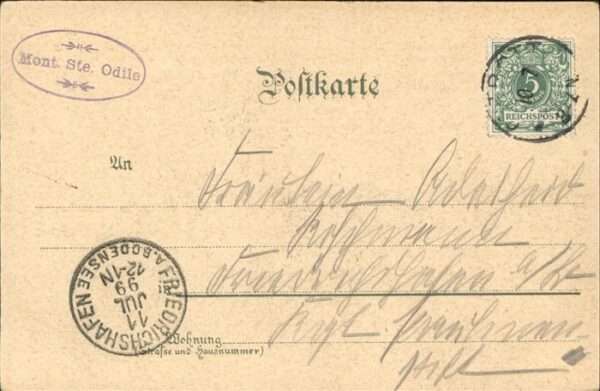 Mont. Ste. Odile
Postkarte
5
REICHSPOST
10 7
An
Fräulein Adelheid
Friedrichshafen a/B
Kgl.
stift
FRIEDRICHSHAFEN
A. BODENSEE
11
JUL
99
12-1N
Wohnung
(Straße und Hausnummer)